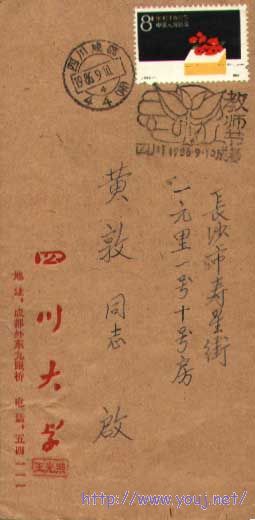 8分
四川成都
1986.9.10
教师节
四川 1986.9.10 成都
長沙市寿星街
二元里一号十号房
黄敦同志 啟
四川大学
地址:成都外东九眼桥 电话:五四一一一
http://www.youj.net/